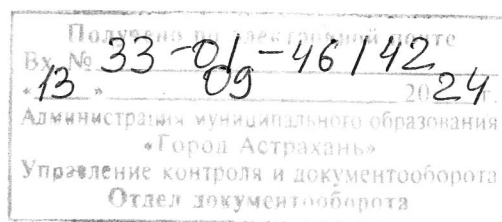 Получено по электронной почте
Вх. № 33-01-46/42
«13» 09 2024 г.
Администрация муниципального образования
«Город Астрахань»
Управление контроля и документооборота
Отдел документооборота